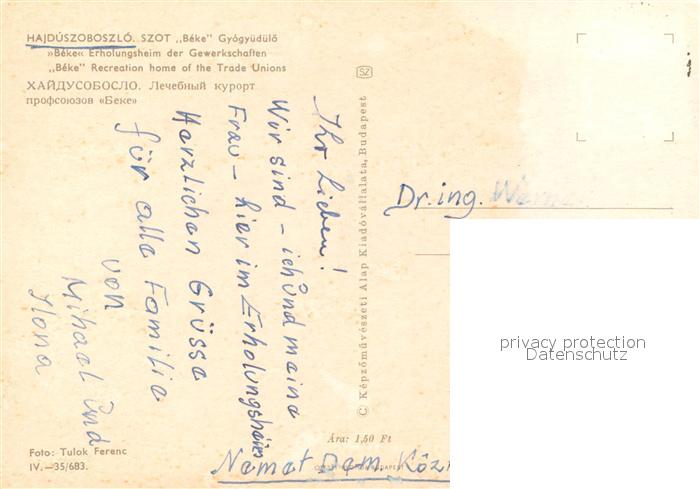 HAJDÚSZOBOSZLÓ. SZOT „Béke" Gyógyüdülő
»Béke« Erholungsheim der Gewerkschaften
„Béke" Recreation home of the Trade Unions
ХАЙДУСОБОСЛО. Лечебный курорт
профсоюзов «Беке»
Ihr Lieben!
Wir sind - ich und meine
Frau - hier im Erholungsheim
Herzlichen Grüsse
für alle Familie
von
Mihael und
Ilona
SZ
© Képzőművészeti Alap Kiadóvállalata, Budapest
Dr. ing.
privacy protection
Datenschutz
Ára: 1,50 Ft
Nemet Dem. Köz
Foto: Tulok Ferenc
IV.—35/683.